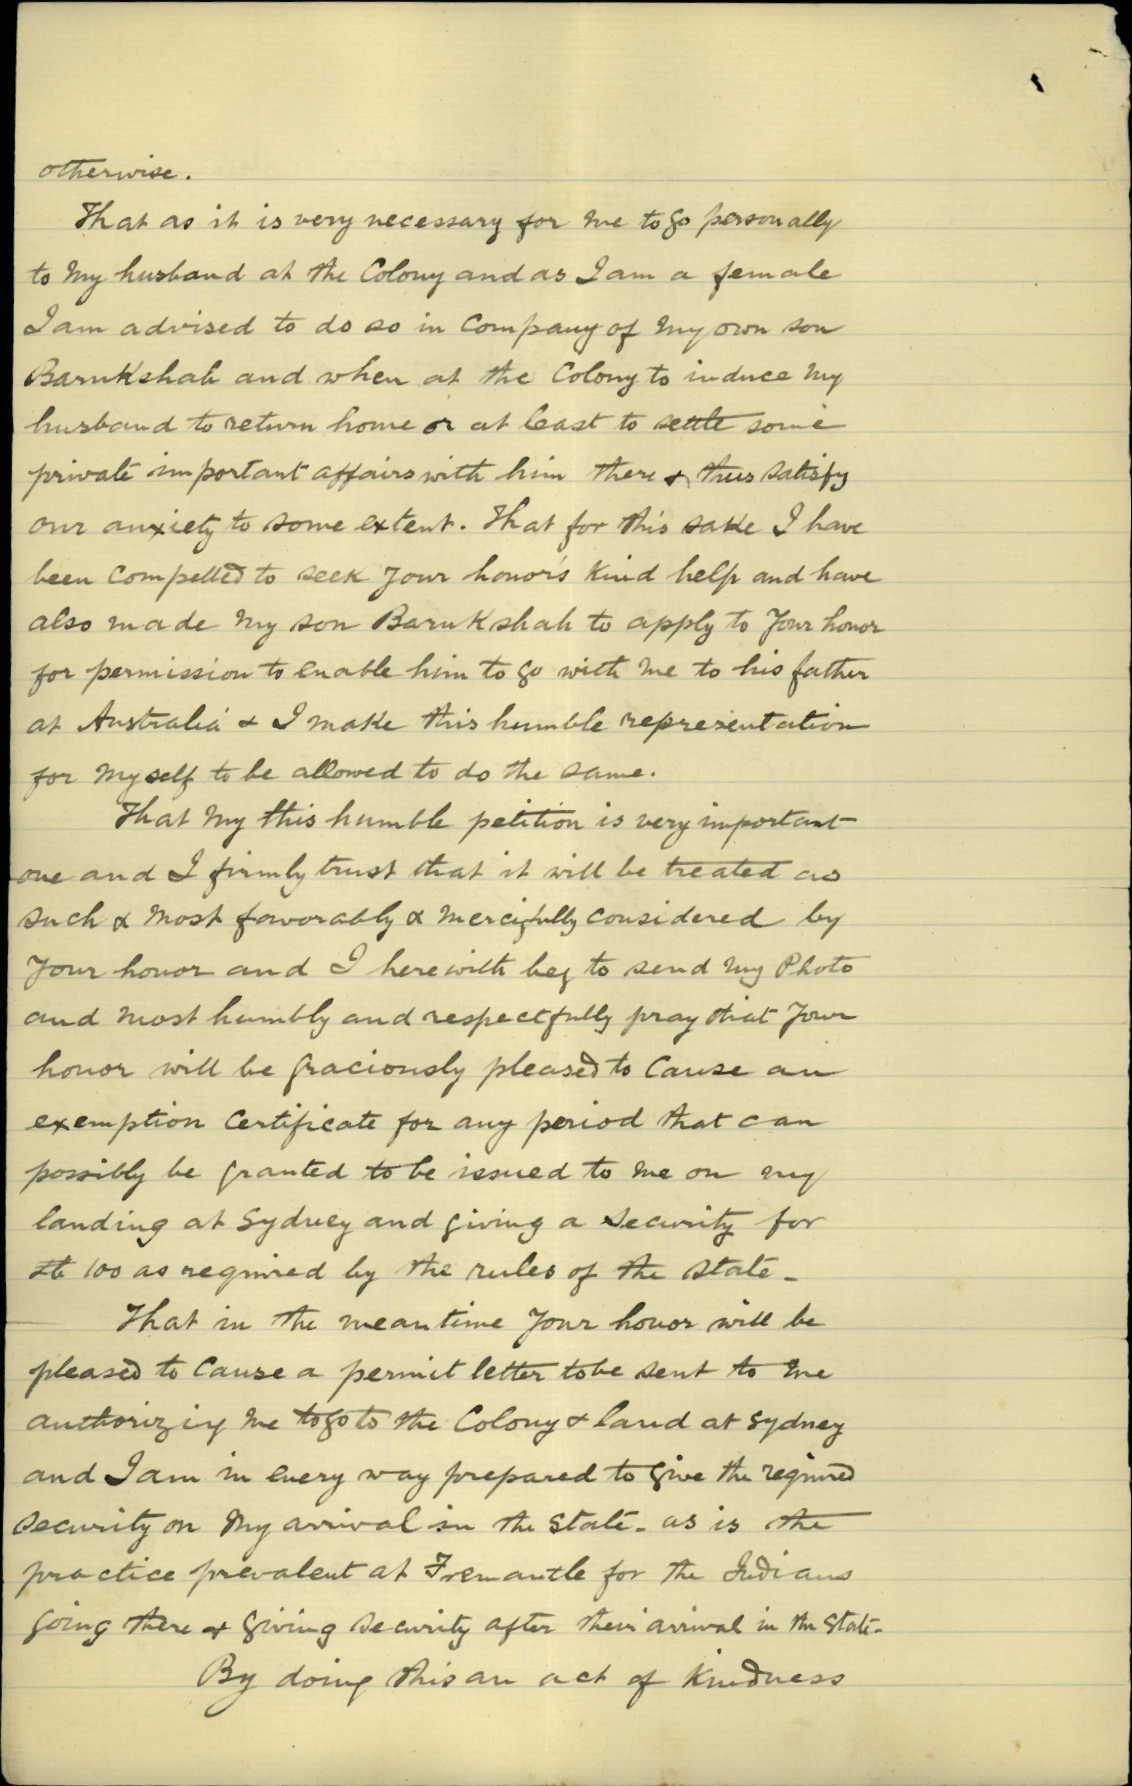 otherwise.
That as it is very necessary for me to go personally
to my husband at the Colony and as I am a female
I am advised to do so in company of my own son
Barukshah and when at the Colony to induce my
husband to return home or at least to settle some
private important affairs with him there & thus satisfy
our anxiety to some extent. That for this sake I have
been compelled to seek your honor's kind help and have
also made my son Barukshah to apply to your honor
for permission to enable him to go with me to his father
at Australia & I make this humble representation
for myself to be allowed to do the same.
That my this humble petition is very important
one and I firmly trust that it will be treated as
such & most favorably & mercifully considered by
your honor and I herewith beg to send my Photo
and most humbly and respectfully pray that your
honor will be graciously pleased to cause an
exemption certificate for any period that can
possibly be granted to be issued to me on my
landing at Sydney and giving a security for
100 as required by the rules of the state-
That in the meantime your honor will be
pleased to cause a permit letter to be sent to me
authorizing me to go to the Colony & land at Sydney
and I am in every way prepared to give the required
security on my arrival in the state- as is the
practice prevalent at Fremantle for the Indians
going there & giving security after their arrival in the state-
By doing this an act of kindness